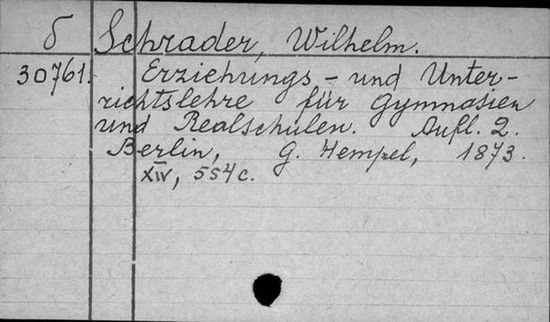 δ Schrader, Wilhelm.
30761. Erziehungs- und Unter-
richtslehre für Gymnasien
und Realschulen. Aufl. 2.
Berlin, G. Hempel, 1873.
XIV, 554c.